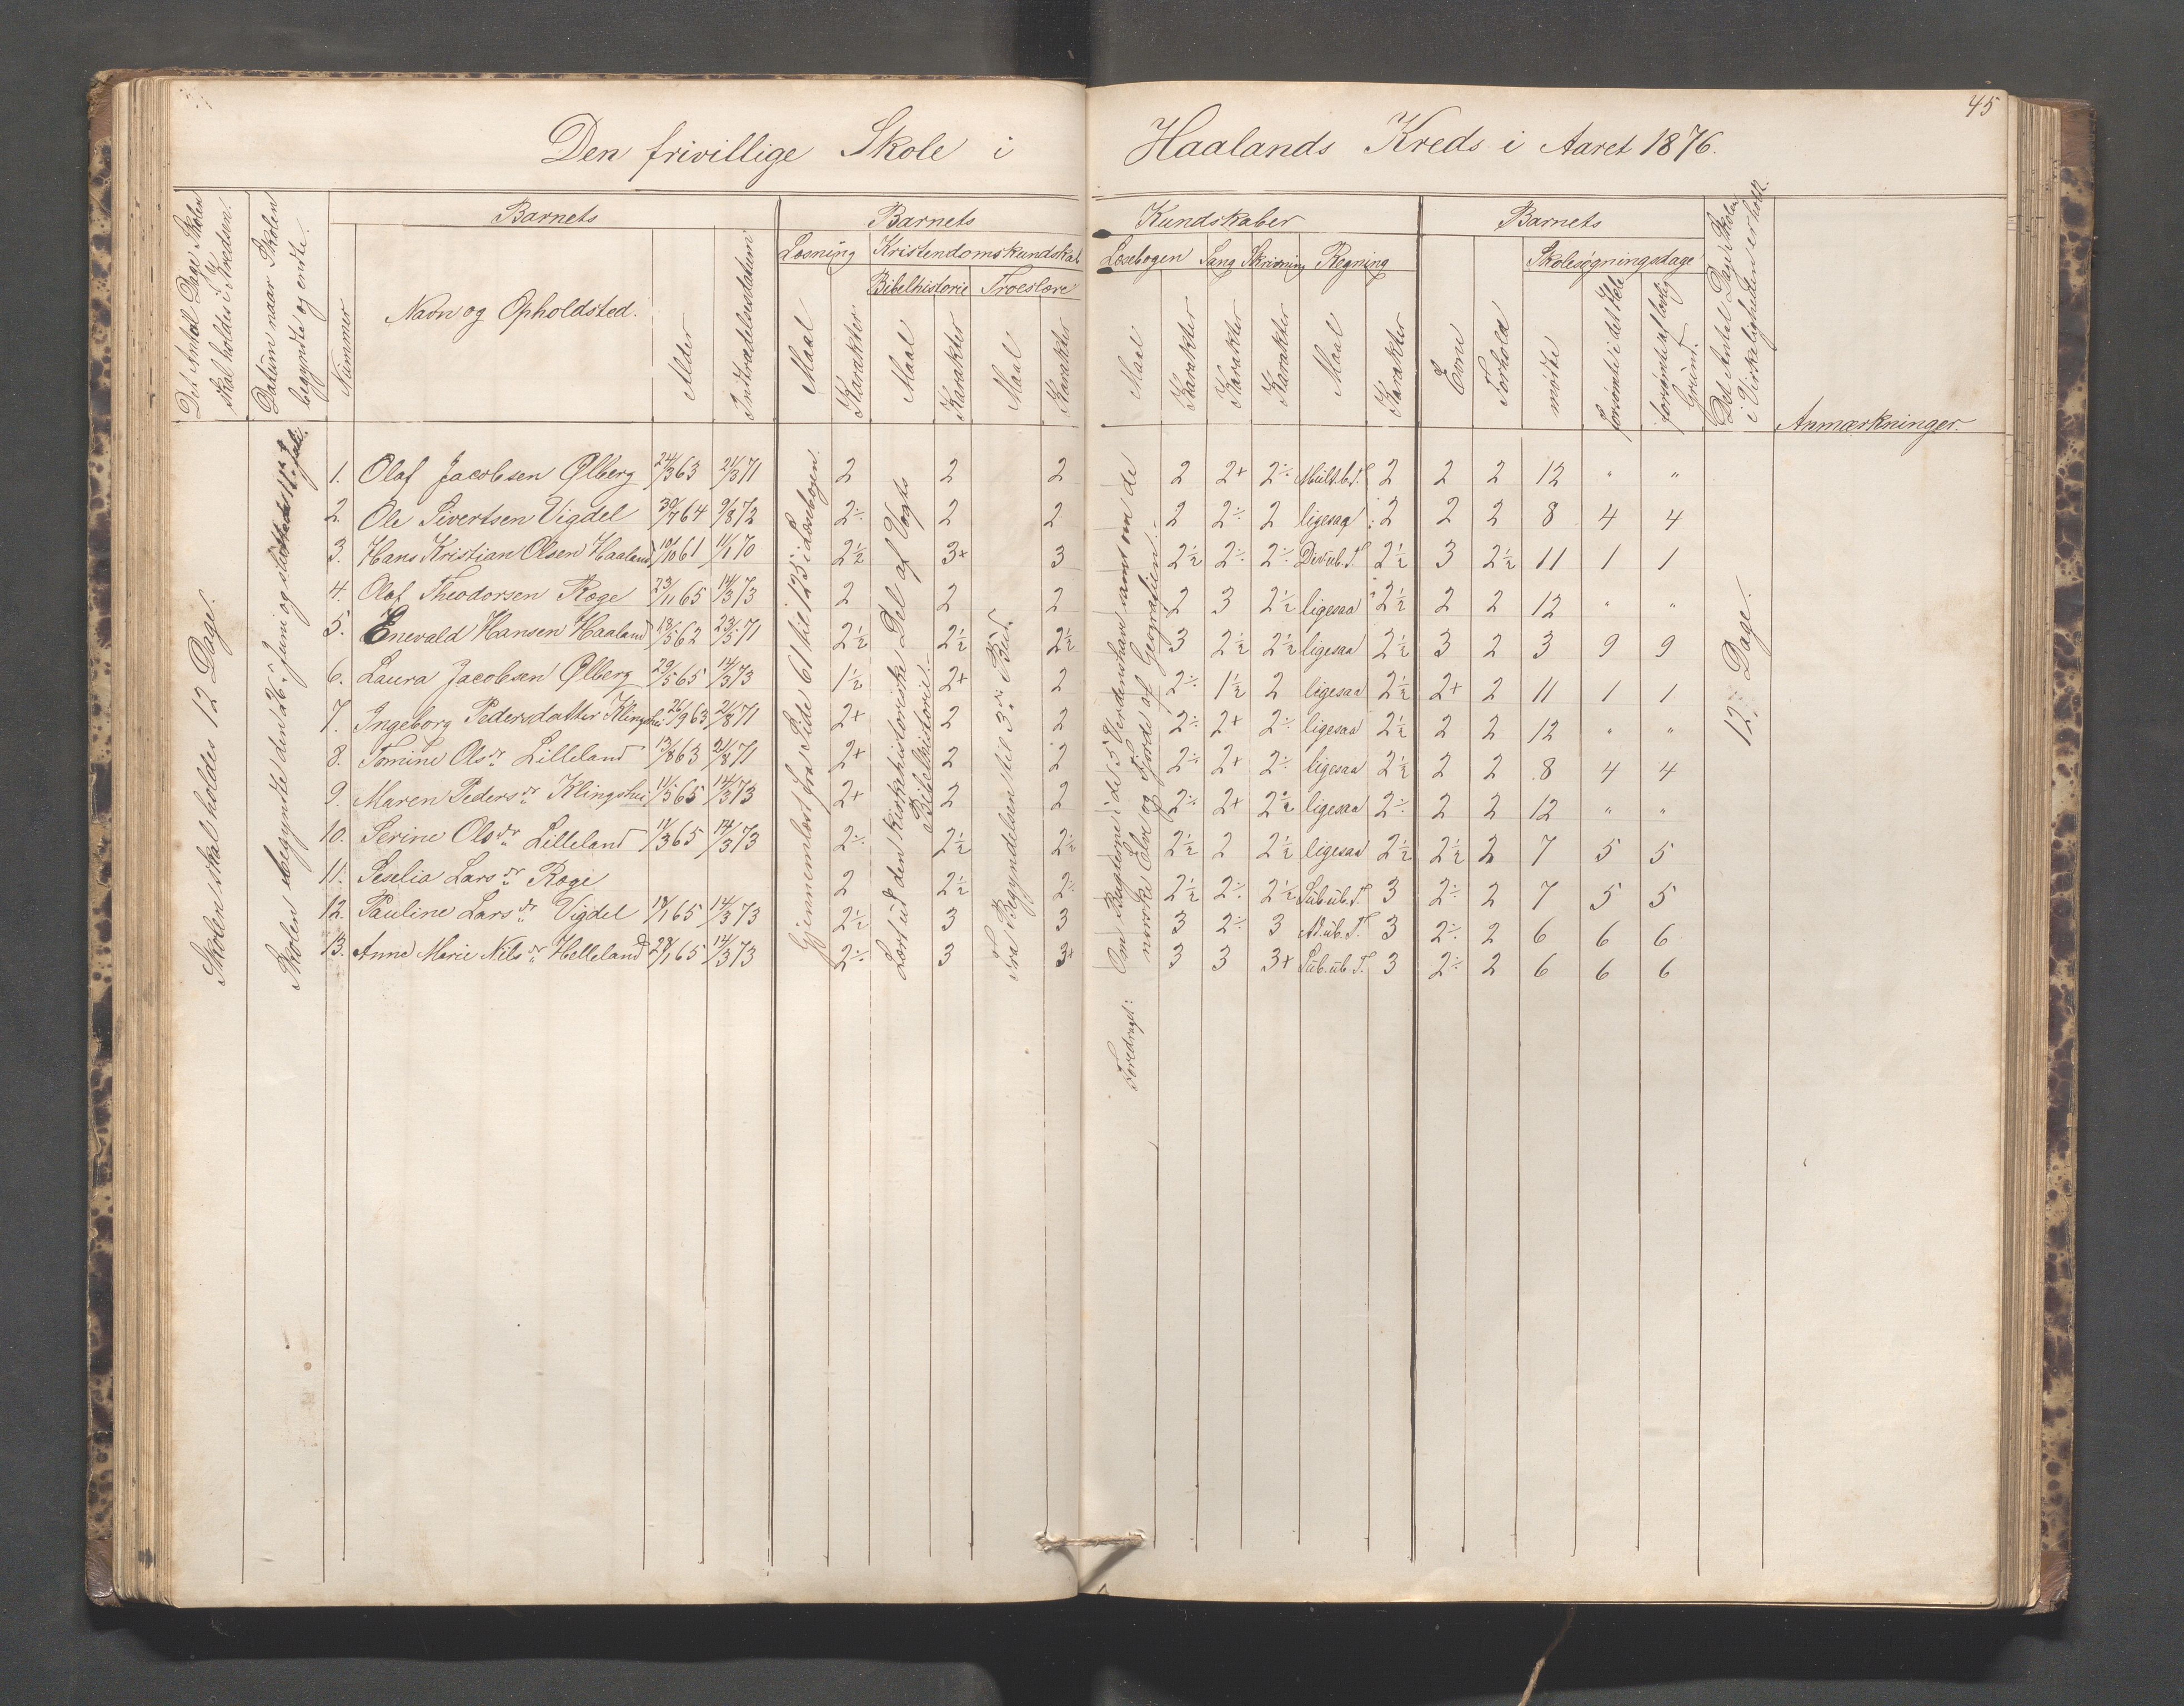 45
Den frivillige Skole i Haalands Kreds i Aaret 1876.
Det Antal Dage Skolen skal holdes i Kredsen.
Datum naar Skolen begyndte og endte.
Barnets
Nummer
Navn og Opholdsted.
Alder
Indtrædelsesdatum
Barnets Kundskaber
Læsning
Kristendomskundskab
Bibelhistorie
Troeslære
Maal
Karakter
Maal
Karakter
Maal
Karakter
Læsebogen
Sang
Skrivning
Regning
Maal
Karakter
Karakter
Karakter
Maal
Karakter
Barnets
Evne
Forhold
Skolesøgningsdage
mødte
forsømte i det Hele
forsømte af lovlig Grund.
Det Antal Dage Skolen i Virkeligheden er holdt.
Anmærkninger.
Skolen skal holdes 12 Dage.
Skolen begyndte den 26de Juni og sluttede 11te Juli.
Gjennemlæst fra Side 61 til 125 i Læsebogen.
Lært ud den kirkehistoriske Del af Vogts Bibelhistorie.
Fra Begyndelsen til 3die Bud.
Foredraget: Om Bugterne i de 5 Verdenshave samt om de norske Elve og Fjorde af Geografien.
12 Dage.
1. Olaf Jacobsen Ølberg 24/3 63 21/8 71 2 2 2 2 2+ 2÷ Mult.b.T. 2 2 2 12 " "
2. Ole Sivertsen Vigdel 30/7 64 9/8 72 2÷ 2 2 2 2÷ 2 ligesaa 2 2 2 8 4 4
3. Hans Kristian Olsen Haaland 10/10 61 11/1 70 2½ 3+ 3 2½ 2÷ 2÷ Div.ub.T. 2½ 3 2½ 11 1 1
4. Olaf Theodorsen Røge 23/11 65 14/3 73 2 2 2 2 3 2½ ligesaa 2½ 2 2 12 " "
5. Enevald Hansen Haaland 18/5 62 23/5 71 2½ 2½ 2½ 3 2½ 2½ ligesaa 2½ 3 2 3 9 9
6. Laura Jacobsen Ølberg 29/5 65 14/3 73 1½ 2+ 2 2÷ 1½ 2 ligesaa 2½ 2+ 2 11 1 1
7. Ingeborg Pedersdatter Klingshei 26/9 63 21/8 71 2+ 2 2 2÷ 2+ 2÷ ligesaa 2½ 2 2 12 " "
8. Tomine Olsdr Lilleland 13/8 63 21/8 71 2+ 2 2 2÷ 2+ 2÷ ligesaa 2½ 2 2 8 4 4
9. Maren Pedersdr Klingshei 11/5 65 14/3 73 2+ 2 2 2÷ 2+ 2½ ligesaa 2÷ 2 2 12 " "
10. Serine Olsdr Lilleland 11/3 65 14/3 73 2÷ 2½ 2½ 2½ 2 2½ ligesaa 2½ 2½ 2 7 5 5
11. Seselia Larsdr Røge 2 2½ 2÷ 2½ 2÷ 2½ Sub.ub.T. 3 2÷ 2 7 5 5
12. Pauline Larsdr Vigdel 18/1 65 14/3 73 2½ 3 3 3 2÷ 3 Ad.ub.T. 3 2÷ 2 6 6 6
13. Anne Marie Nilsdr Helleland 28/1 65 14/3 73 2÷ 3 3+ 3 3 3+ Sub.ub.T. 3 2÷ 2 6 6 6